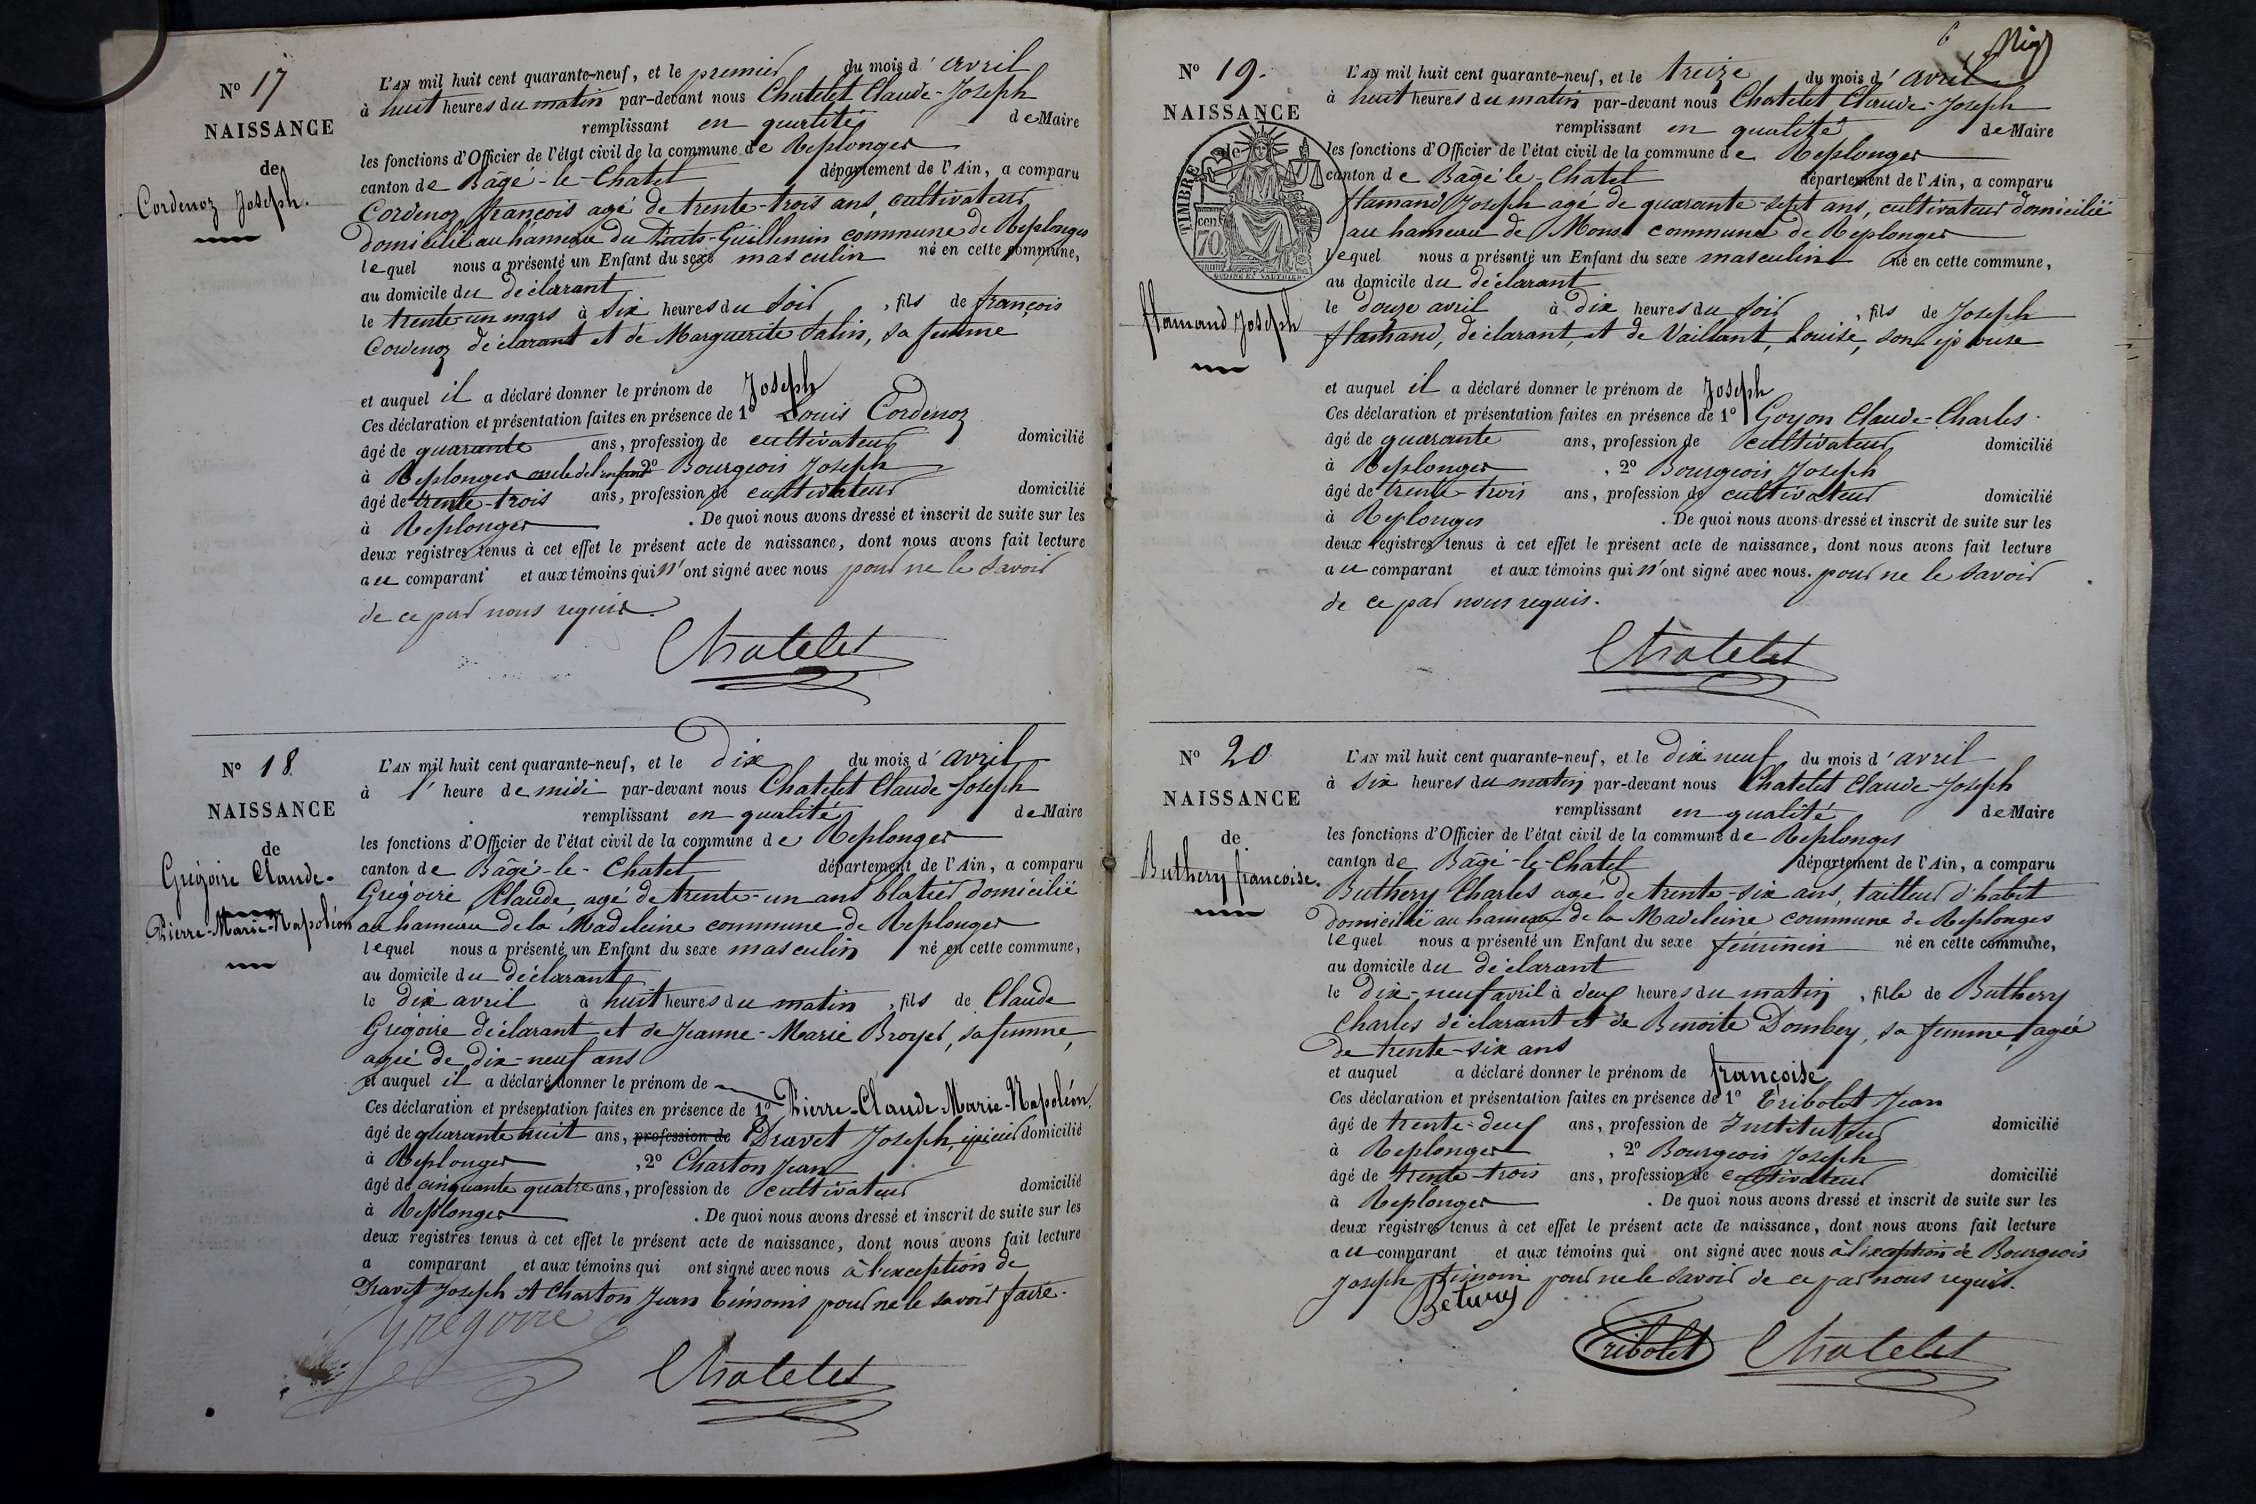 N° 17
NAISSANCE
de
Cordenoz Joseph.
L'AN mil huit cent quarante-neuf, et le premier du mois d'avril
à huit heures du matin par-devant nous Chatelet Claude-Joseph
remplissant en qualité de Maire
les fonctions d'Officier de l'état civil de la commune de Replonges
canton de Bâgé-le-Chatel département de l'Ain, a comparu
Cordenoz françois agé de trente-trois ans, cultivateur
domicilié au hameau du Puits-Guillemin commune de Replonges
lequel nous a présenté un Enfant du sexe masculin né en cette commune,
au domicile du déclarant
le trente un mars à six heures du soir, fils de françois
Cordenoz déclarant et de Marguerite Salin, sa femme
et auquel il a déclaré donner le prénom de Joseph
Ces déclaration et présentation faites en présence de 1° Louis Cordenoz
âgé de quarante ans, profession de cultivateur domicilié
à Replonges oncle de l'enfant 2° Bourgeois Joseph
âgé de trente-trois ans, profession de cultivateur domicilié
à Replonges. De quoi nous avons dressé et inscrit de suite sur les
deux registres tenus à cet effet le présent acte de naissance, dont nous avons fait lecture
au comparant et aux témoins qui n'ont signé avec nous pour ne le savoir
de ce par nous requis.
Chatelet
N° 18
NAISSANCE
de
Grégoire Claude-
Pierre-Marie-Napoléon
L'AN mil huit cent quarante-neuf, et le dix du mois d'avril
à l' heure de midi par-devant nous Chatelet Claude-Joseph
remplissant en qualité de Maire
les fonctions d'Officier de l'état civil de la commune de Replonges
canton de Bâgé-le-Chatel département de l'Ain, a comparu
Grégoire Claude, agé de trente-un ans blatier domicilié
au hameau de la Madeleine commune de Replonges
lequel nous a présenté un Enfant du sexe masculin né en cette commune,
au domicile du déclarant
le dix avril à huit heures du matin, fils de Claude
Grégoire déclarant et de Jeanne-Marie Broyer, sa femme,
agée de dix-neuf ans
et auquel il a déclaré donner le prénom de
Ces déclaration et présentation faites en présence de 1° Pierre-Claude-Marie-Napoléon.
âgé de quarante huit ans, profession de Dravet Joseph, épicier domicilié
à Replonges, 2° Charton Jean
âgé de cinquante quatre ans, profession de cultivateur domicilié
à Replonges. De quoi nous avons dressé et inscrit de suite sur les
deux registres tenus à cet effet le présent acte de naissance, dont nous avons fait lecture
a comparant et aux témoins qui ont signé avec nous à l'exception de
Dravet Joseph et Charton Jean témoins pour ne le savoir faire.
Gregoire
Chatelet
6
N° 19.
NAISSANCE
de
TIMBRE
70
flamand Joseph
L'AN mil huit cent quarante-neuf, et le treize du mois d'avril
à huit heures du matin par-devant nous Chatelet Claude-Joseph
remplissant en qualité de Maire
les fonctions d'Officier de l'état civil de la commune de Replonges
canton de Bagé le-Chatel département de l'Ain, a comparu
flamand Joseph agé de quarante-sept ans, cultivateur domicilié
au hameau de Mons commune de Replonges
lequel nous a présenté un Enfant du sexe masculin né en cette commune,
au domicile du déclarant
le douze avril à dix heures du soir, fils de Joseph
flamand, déclarant, et de Vaillant, Louise, son épouse
et auquel il a déclaré donner le prénom de Joseph
Ces déclaration et présentation faites en présence de 1° Goyon Claude-Charles
âgé de quarante ans, profession de cultivateur domicilié
à Replonges, 2° Bourgeois Joseph
âgé de trente-trois ans, profession de cultivateur domicilié
à Replonges. De quoi nous avons dressé et inscrit de suite sur les
deux registres tenus à cet effet le présent acte de naissance, dont nous avons fait lecture
au comparant et aux témoins qui n'ont signé avec nous. pour ne le savoir
de ce par nous requis.
Chatelet
N° 20
NAISSANCE
de
Buthery francoise.
L'AN mil huit cent quarante-neuf, et le dix neuf du mois d'avril
à six heures du matin par-devant nous Chatelet Claude-Joseph
remplissant en qualité de Maire
les fonctions d'Officier de l'état civil de la commune de Replonges
canton de Bâgé-le-Chatel département de l'Ain, a comparu
Buthery Charles age de trente-six ans, tailleur d'habit
domicilié au hameau de la Madeleine commune de Replonges
lequel nous a présenté un Enfant du sexe féminin né en cette commune,
au domicile du déclarant
le dix-neuf avril à deux heures du matin, fille de Buthery
Charles déclarant et de Benoite Dombey, sa femme, agée
de trente-six ans
et auquel a déclaré donner le prénom de françoise
Ces déclaration et présentation faites en présence de 1° Tribolet Jean
âgé de trente-deux ans, profession de Instituteur domicilié
à Replonges, 2° Bourgeois Joseph
âgé de trente-trois ans, profession de cultivateur domicilié
à Replonges. De quoi nous avons dressé et inscrit de suite sur les
deux registres tenus à cet effet le présent acte de naissance, dont nous avons fait lecture
au comparant et aux témoins qui ont signé avec nous à l'exception de Bourgeois
Joseph témoin pour ne le savoir de ce par nous requis.
Tribolet Chatelet